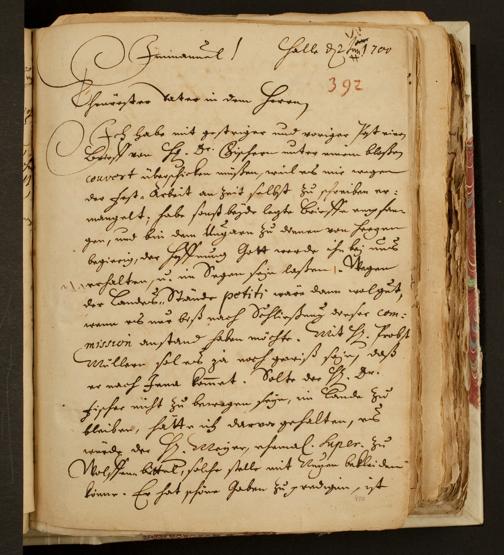 Immanuel! Halle d. 2. 1700
392
Theurester Vater in dem Herrn,
Ich habe mit gestriger und voriger Post einen
Brieff von H. Dr. Fischern unter einem blossen
couvert überschicken müssen, weil es mir wegen
der fast. Arbeit an Zeit selbst zu schreiben er-
mangelt; habe sonst beyde letzte Brieffe empfan-
gen, und bin dem Ungarn zu dienen von Herzen
begierig, der Hoffnung Gott werde ihn bey uns
erhalten, u. im Segen seyn lassen. Wegen
der Landes-Stände petiti wäre dann wol gut,
wenn es nur biß nach Schliessung dieser com-
mission anstand haben möchte. Mit H. Probst
Müllern sol es ja noch gewiß seyn, daß
er nach Jena kömt. Solte der H. Dr.
Fischer nicht zu bewegen seyn, im Lande zu
bleiben, hätte ich davor gehalten, es
würde der H. Meyer, ehemal. Super. zu
Wolffenbüttel, solche stelle mit Nutzen bekleiden
können. Er hat schöne Gaben zu predigen, ist